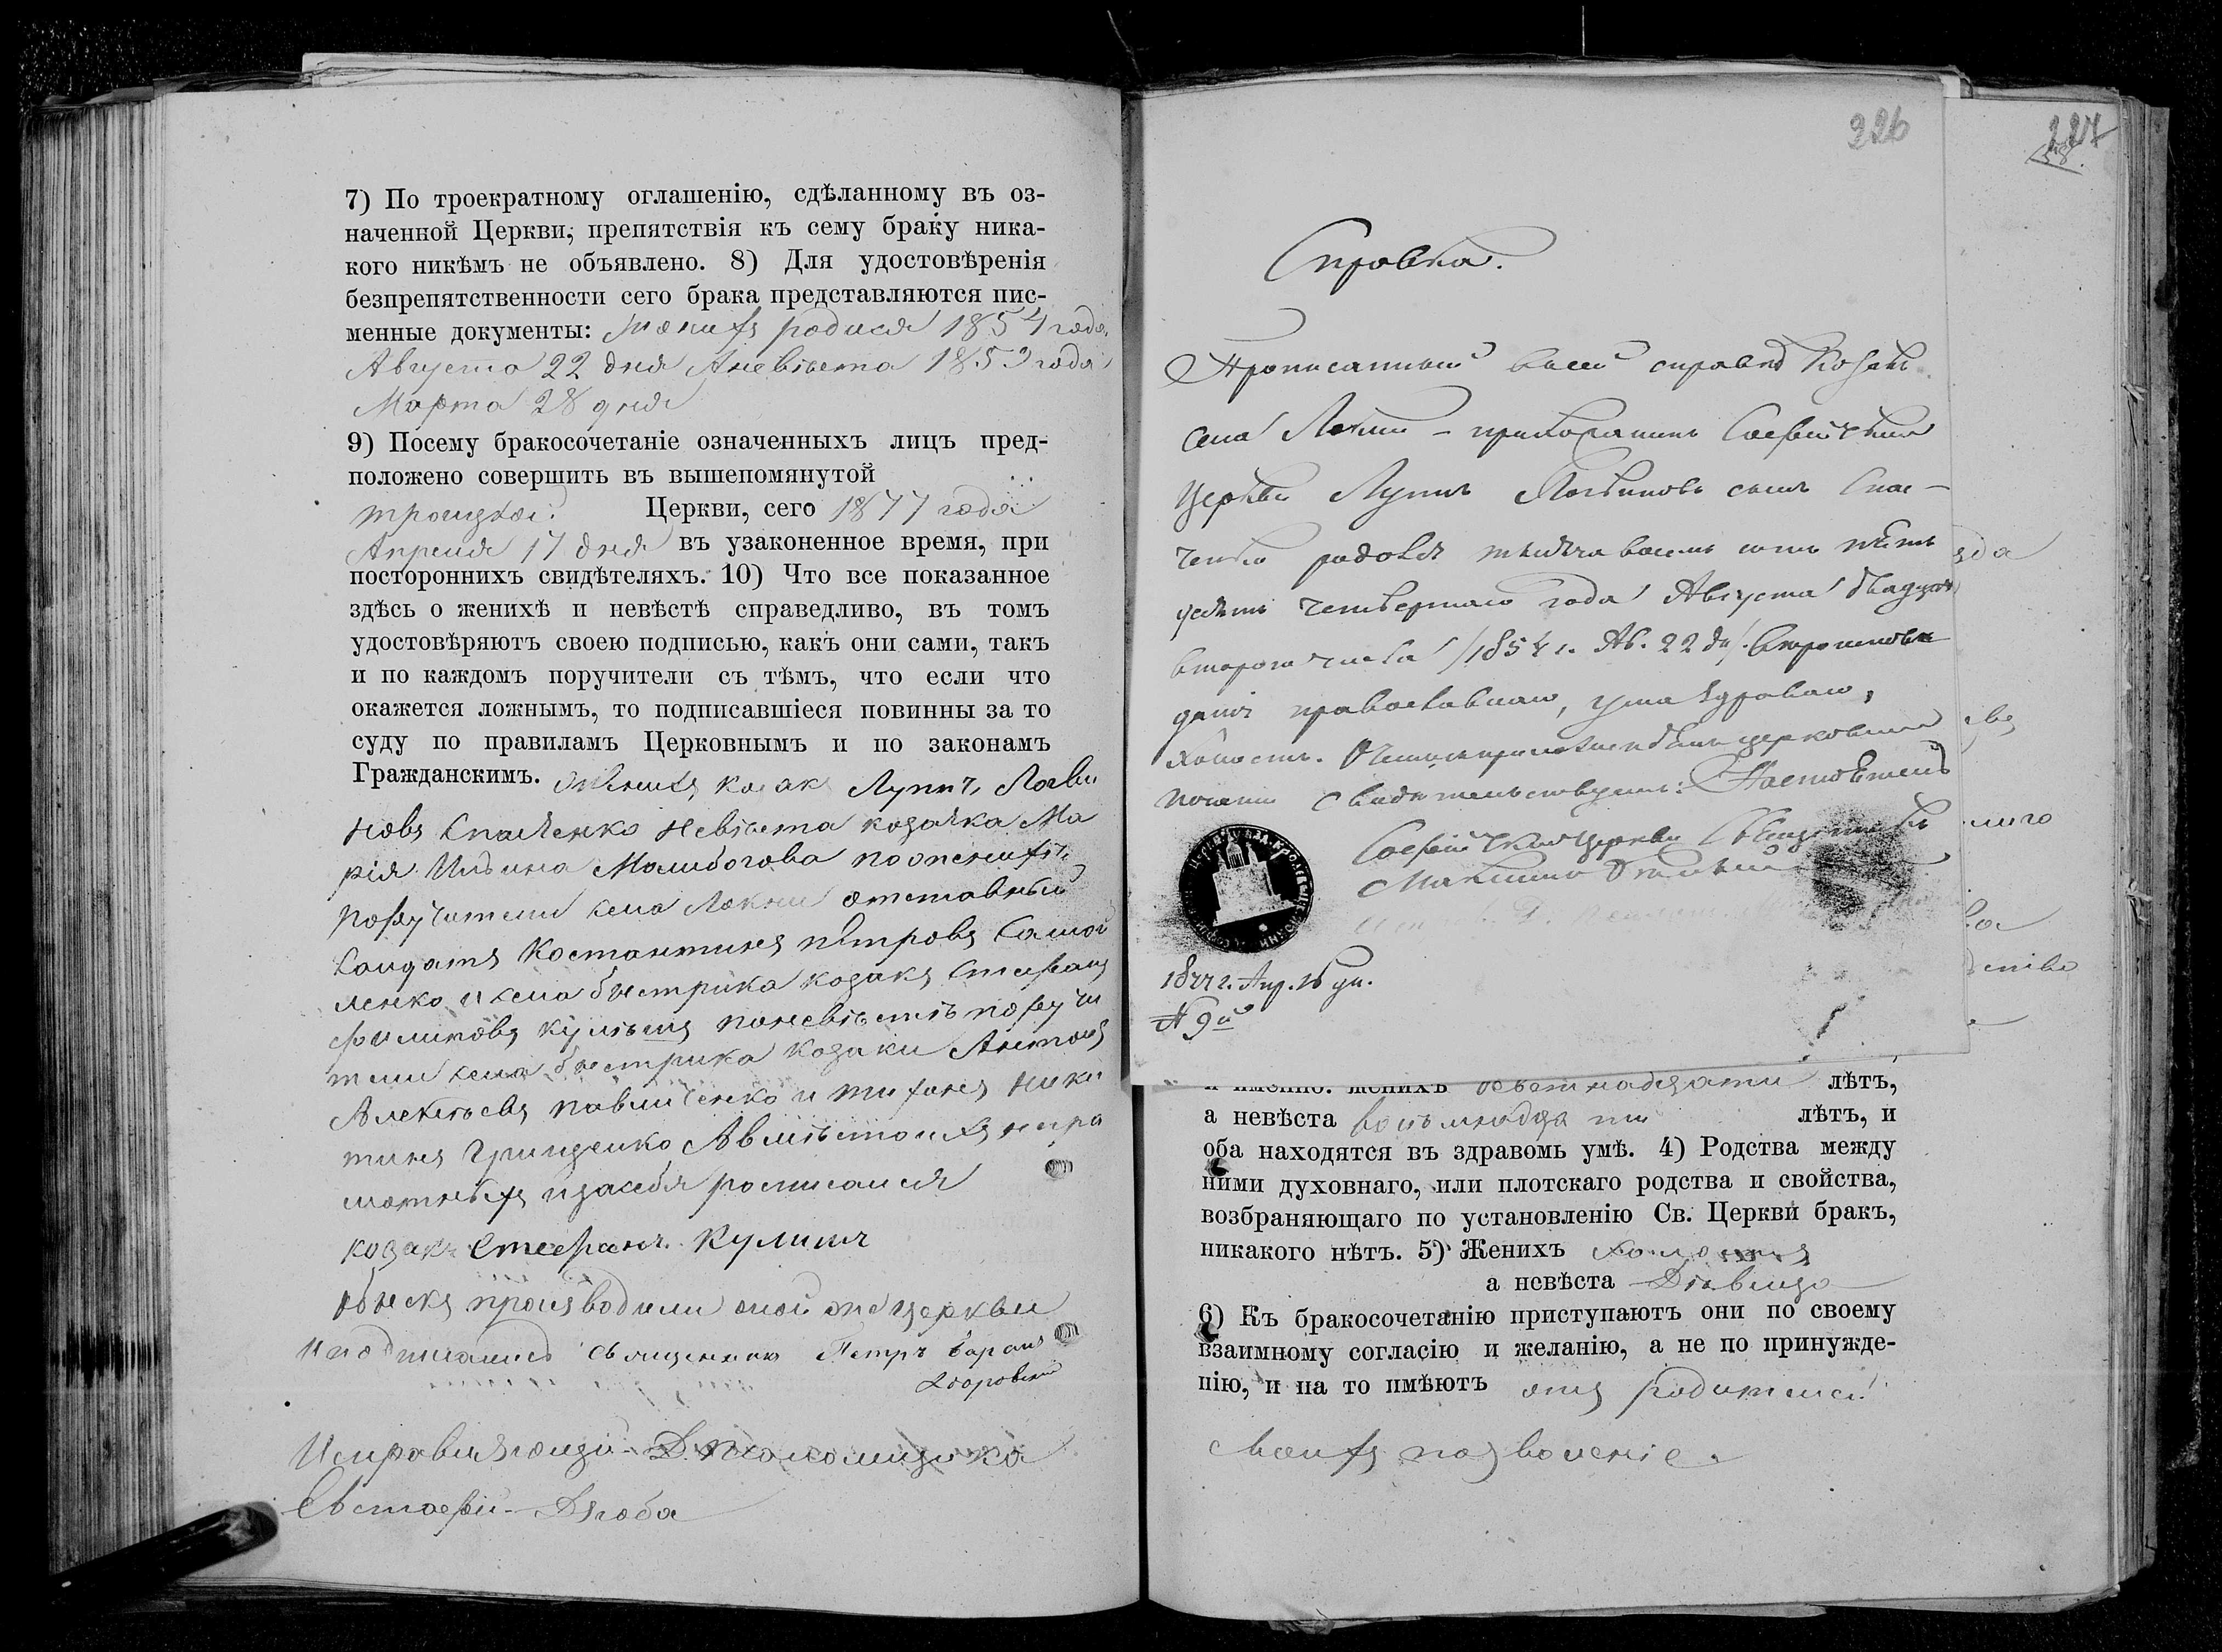 7) По троекратному оглашенію, сдѣланному въ оз-
наченной Церкви, препятствія къ сему браку ника-
кого никѣмъ не объявлено. 8) Для удостовѣренія
безпрепятственности сего брака представляются пис-
менные документы: женихъ родился 1854 года
Августа 22 дня Аневѣста 1853 года
Марта 28 дня
9) Посему бракосочетаніе означенныхъ лицъ пред-
положено совершить въ вышепомянутой
троицкой Церкви, сего 1877 года
Апреля 17 дня въ узаконенное время, при
постороннихъ свидѣтеляхъ. 10) Что все показанное
здѣсь о женихѣ и невѣстѣ справедливо, въ томъ
удостовѣряютъ своею подписью, какъ они сами, такъ
и по каждомъ поручители съ тѣмъ, что если что
окажется ложнымъ, то подписавшіеся повинны за то
суду по правиламъ Церковнымъ и по законамъ
Гражданскимъ. женихъ козакъ Луппъ Логви
новъ Спасченко невѣста козачка Ма
рія Ильина Малибогова по женихѣ
поручители села Локни отставный
Солдатъ Костантинъ Петровъ Самой
ленко и села быстрика козакъ Стефанъ
филиповъ кулѣшъ поневѣстѣ поручи
тели села быстрика козаки Антонъ
Алексѣевъ павличенко и тифонъ Ники
тинъ Грищенко Авмѣсто ихъ негра
мотныхъ изасебя росписался
козакъ Стефанъ Кулишъ
обыскъ производили оной же церкви
и подписались священникъ Петръ Баран
Зборовскій
Исправляющій Д. Псаломщика
Евстафій Дзюба
226
Справка.
Прописанный въсей справкѣ Козакъ
села Локни – прихожанинъ Софійской
Церкви Луппъ Логвиновъ сынъ Спас-
ченко родился тысяча восемь сотъ пять
десятъ четвертаго года Августа двадцать
втораго числа /1854 г. Ав. 22 дн/. Вѣроисповѣ
данія православнаго, ума здраваго,
холостъ. Очемъ съприложеніемъ церковной
печати свидѣтельствуемъ: Настоятель
Софійской Церкви Священникъ
1877 г. Апр. 16 дн.
№ 9й
227
58.
и именно: женихъ девятнадцати лѣтъ,
а невѣста восьмнадца ти лѣтъ, и
оба находятся въ здравомъ умѣ. 4) Родства между
ними духовнаго, или плотскаго родства и свойства,
возбраняющаго по установленію Св. Церкви бракъ,
никакого нѣтъ. 5) Женихъ холостъ
а невѣста Дѣвица
6) Къ бракосочетанію приступаютъ они по своему
взаимному согласію и желанію, а не по принужде-
нію, и на то имѣютъ отъ родителей
своихъ позволеніе.